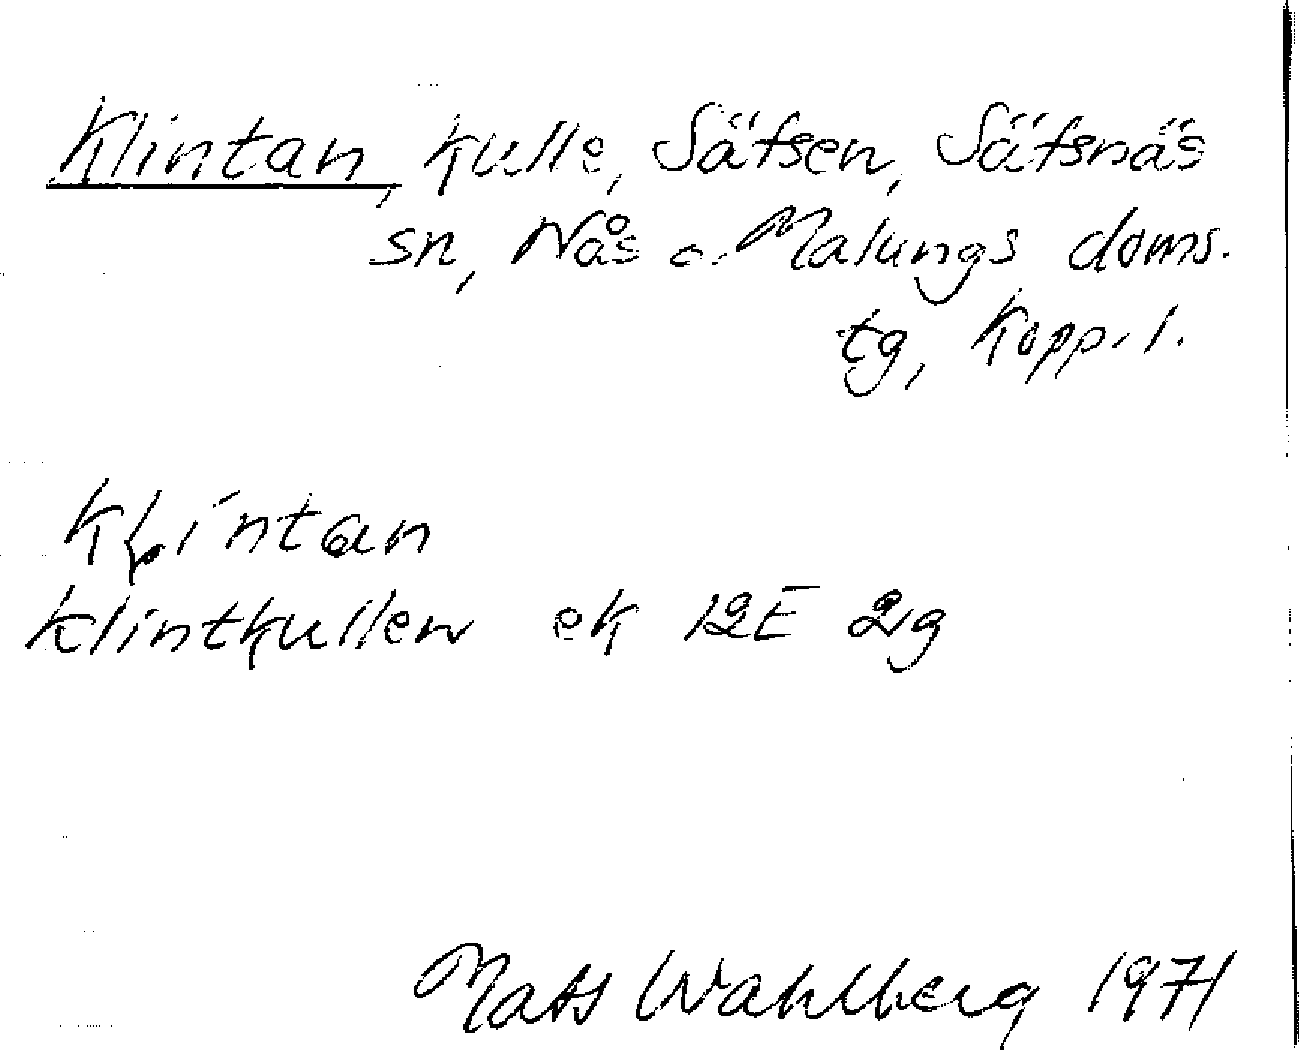 Klintan, kulle, Säfsen, Säfsnäs
sn, Nås o. Malungs doms.
tg, Kopp. l.
Klintan
Klintkullen ek 12E 2g
Mats Wahlberg 1971